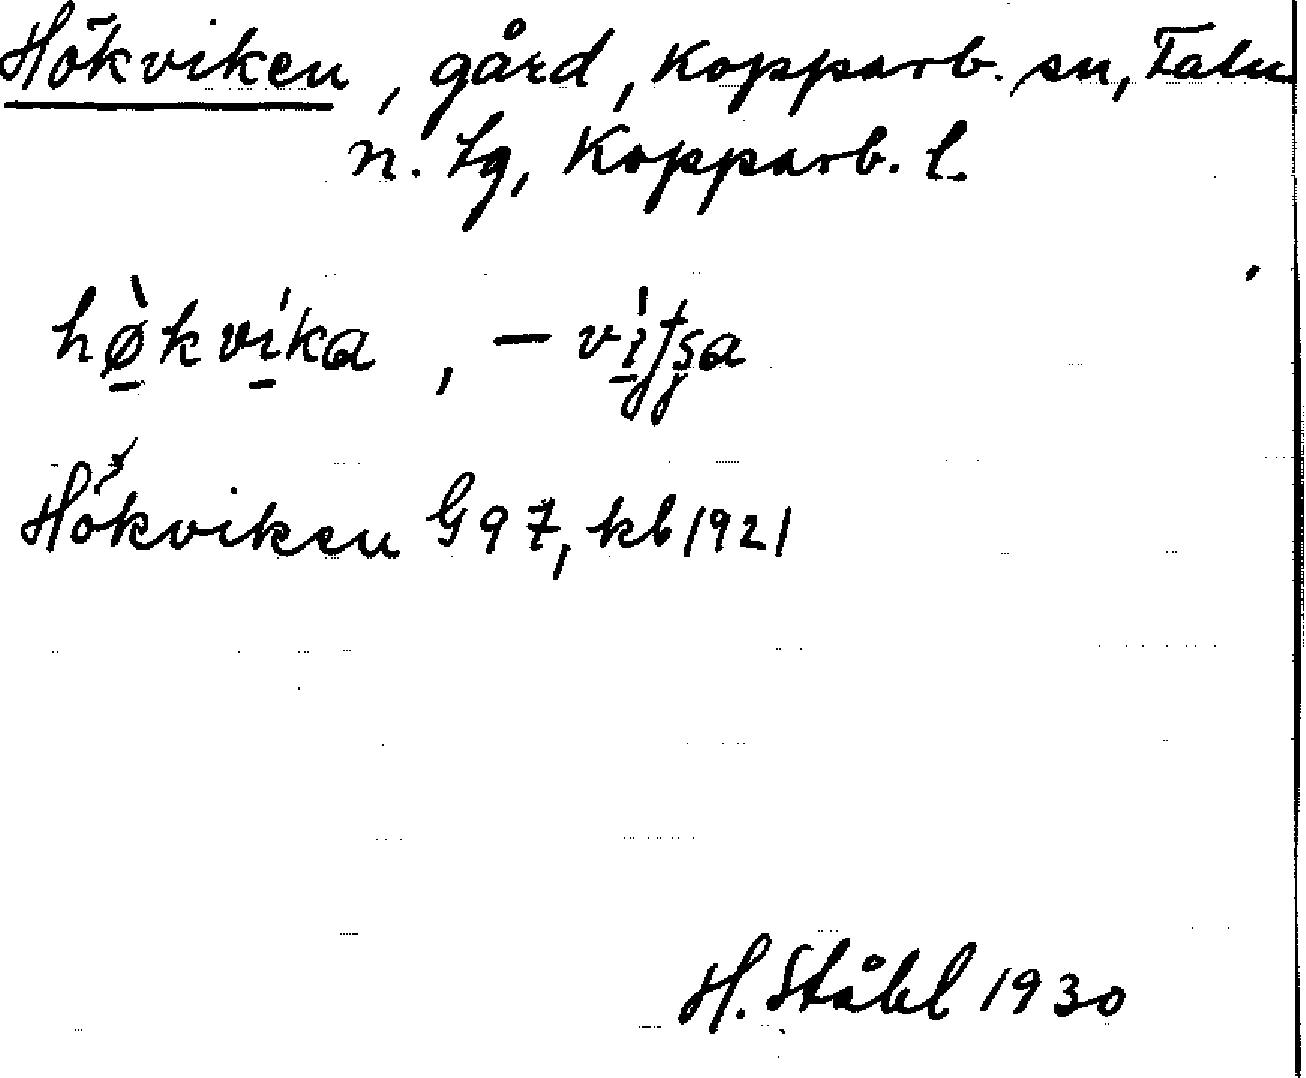 Hökviken, gård, Kopparb. sn, Falu
n. tg, Kopparb. l.
hø̠̀kvi̠ka, – vi̠tsa
Hökviken G 97, kb 1921
H. Ståhl 1930